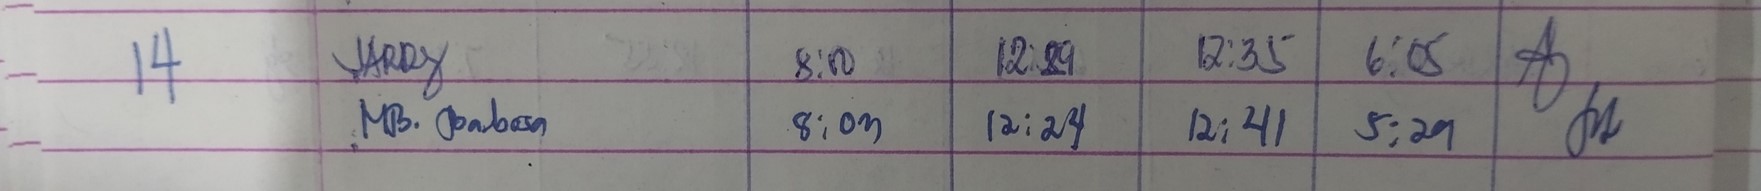 14 JARDY 8:00 12:29 12:35 6:05
MB. Barbosa 8:03 12:24 12:41 5:29